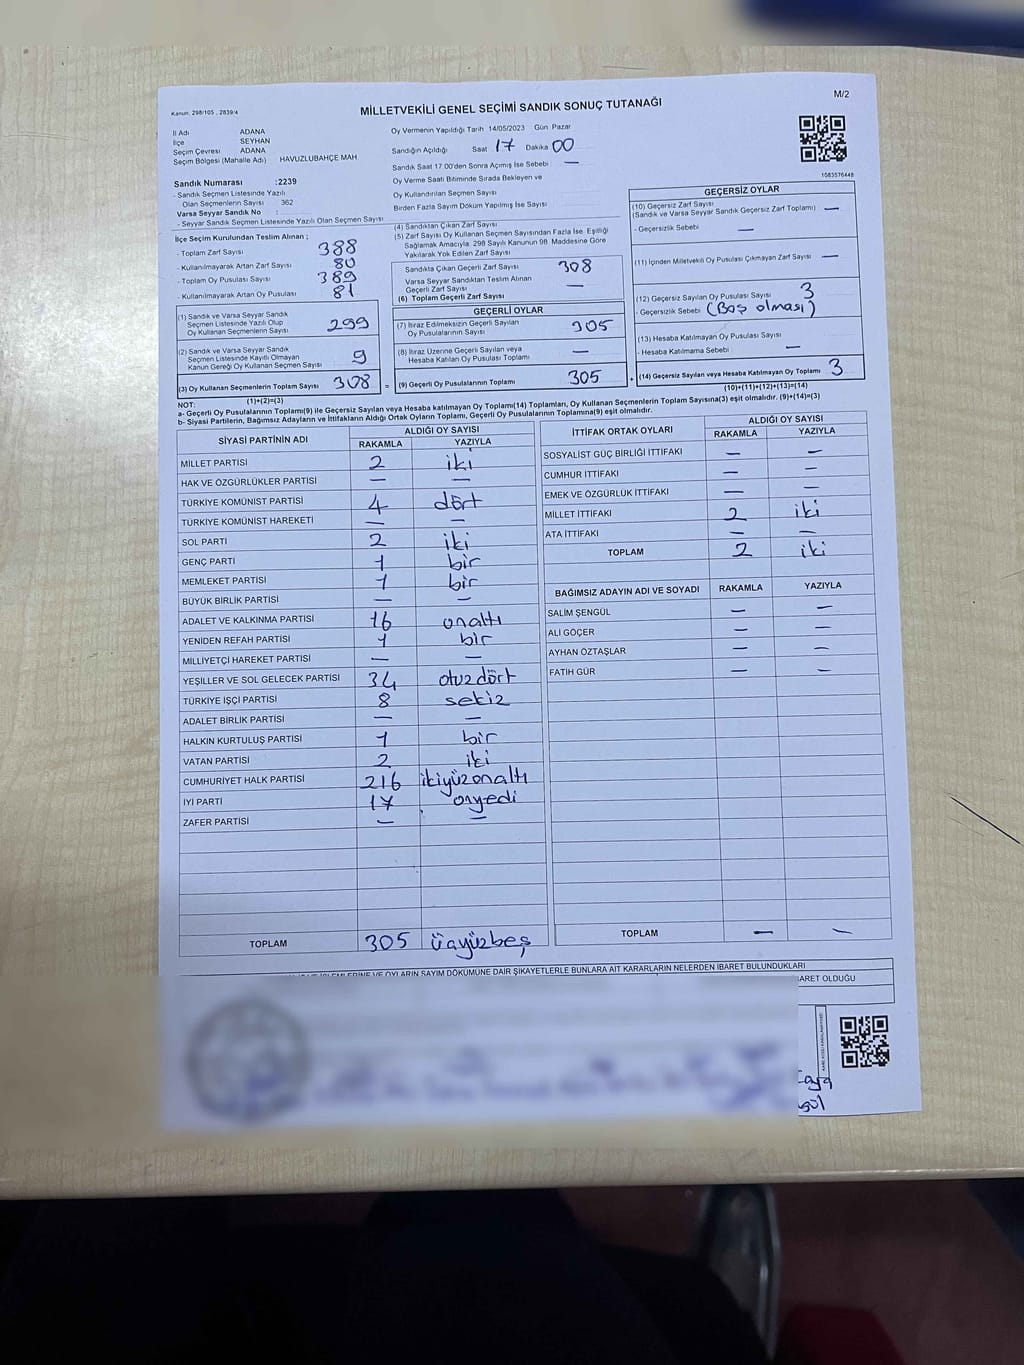 M/2
Kanun: 298/105 , 2839/4
MİLLETVEKİLİ GENEL SEÇİMİ SANDIK SONUÇ TUTANAĞI
İl Adı ADANA
İlçe SEYHAN
Seçim Çevresi ADANA
Seçim Bölgesi (Mahalle Adı) HAVUZLUBAHÇE MAH
Sandık Numarası :2239
- Sandık Seçmen Listesinde Yazılı
Olan Seçmenlerin Sayısı 362
Varsa Seyyar Sandık No :
- Seyyar Sandık Seçmen Listesinde Yazılı Olan Seçmen Sayısı
Oy Vermenin Yapıldığı Tarih 14/05/2023 Gün Pazar
Sandığın Açıldığı Saat 17 Dakika 00
Sandık Saat 17:00'den Sonra Açılmış İse Sebebi —
Oy Verme Saati Bitiminde Sırada Bekleyen ve
Oy Kullandırılan Seçmen Sayısı
Birden Fazla Sayım Döküm Yapılmış İse Sayısı
1083576448
İlçe Seçim Kurulundan Teslim Alınan ;
- Toplam Zarf Sayısı 388
- Kullanılmayarak Artan Zarf Sayısı 80
- Toplam Oy Pusulası Sayısı 389
- Kullanılmayarak Artan Oy Pusulası 81
(1) Sandık ve Varsa Seyyar Sandık
Seçmen Listesinde Yazılı Olup
Oy Kullanan Seçmenlerin Sayısı 299
(2) Sandık ve Varsa Seyyar Sandık
Seçmen Listesinde Kayıtlı Olmayan
Kanun Gereği Oy Kullanan Seçmen Sayısı 9
(3) Oy Kullanan Seçmenlerin Toplam Sayısı 308
(1)+(2)=(3)
(4) Sandıktan Çıkan Zarf Sayısı
(5) Zarf Sayısı Oy Kullanan Seçmen Sayısından Fazla İse, Eşitliği
Sağlamak Amacıyla, 298 Sayılı Kanunun 98. Maddesine Göre
Yakılarak Yok Edilen Zarf Sayısı
Sandıkta Çıkan Geçerli Zarf Sayısı 308
Varsa Seyyar Sandıktan Teslim Alınan
Geçerli Zarf Sayısı —
(6) Toplam Geçerli Zarf Sayısı
GEÇERLİ OYLAR
(7) İtiraz Edilmeksizin Geçerli Sayılan
Oy Pusulalarının Sayısı 305
(8) İtiraz Üzerine Geçerli Sayılan veya
Hesaba Katılan Oy Pusulası Toplamı —
= (9) Geçerli Oy Pusulalarının Toplamı 305
GEÇERSİZ OYLAR
(10) Geçersiz Zarf Sayısı
(Sandık ve Varsa Seyyar Sandık Geçersiz Zarf Toplamı) —
- Geçersizlik Sebebi —
(11) İçinden Milletvekili Oy Pusulası Çıkmayan Zarf Sayısı —
(12) Geçersiz Sayılan Oy Pusulası Sayısı 3
- Geçersizlik Sebebi (Boş olması)
(13) Hesaba Katılmayan Oy Pusulası Sayısı
- Hesaba Katılmama Sebebi —
+ (14) Geçersiz Sayılan veya Hesaba Katılmayan Oy Toplamı 3
(10)+(11)+(12)+(13)=(14)
NOT:
a- Geçerli Oy Pusulalarının Toplamı(9) ile Geçersiz Sayılan veya Hesaba katılmayan Oy Toplamı(14) Toplamları, Oy Kullanan Seçmenlerin Toplam Sayısına(3) eşit olmalıdır. (9)+(14)=(3)
b- Siyasi Partilerin, Bağımsız Adayların ve İttifakların Aldığı Ortak Oyların Toplamı, Geçerli Oy Pusulalarının Toplamına(9) eşit olmalıdır.
SİYASİ PARTİNİN ADI ALDIĞI OY SAYISI
RAKAMLA YAZIYLA
MİLLET PARTİSİ 2 iki
HAK VE ÖZGÜRLÜKLER PARTİSİ — —
TÜRKİYE KOMÜNİST PARTİSİ 4 dört
TÜRKİYE KOMÜNİST HAREKETİ — —
SOL PARTİ 2 iki
GENÇ PARTİ 1 bir
MEMLEKET PARTİSİ 1 bir
BÜYÜK BİRLİK PARTİSİ — —
ADALET VE KALKINMA PARTİSİ 16 onaltı
YENİDEN REFAH PARTİSİ 1 bir
MİLLİYETÇİ HAREKET PARTİSİ — —
YEŞİLLER VE SOL GELECEK PARTİSİ 34 otuzdört
TÜRKİYE İŞÇİ PARTİSİ 8 sekiz
ADALET BİRLİK PARTİSİ — —
HALKIN KURTULUŞ PARTİSİ 1 bir
VATAN PARTİSİ 2 iki
CUMHURİYET HALK PARTİSİ 216 ikiyüzonaltı
İYİ PARTİ 17 onyedi
ZAFER PARTİSİ — —
TOPLAM 305 üçyüzbeş
İTTİFAK ORTAK OYLARI ALDIĞI OY SAYISI
RAKAMLA YAZIYLA
SOSYALİST GÜÇ BİRLİĞİ İTTİFAKI — —
CUMHUR İTTİFAKI — —
EMEK VE ÖZGÜRLÜK İTTİFAKI — —
MİLLET İTTİFAKI 2 iki
ATA İTTİFAKI — —
TOPLAM 2 iki
BAĞIMSIZ ADAYIN ADI VE SOYADI RAKAMLA YAZIYLA
SALİM ŞENGÜL — —
ALİ GÖÇER — —
AYHAN ÖZTAŞLAR — —
FATİH GÜR — —
TOPLAM — —
VE OYLARIN SAYIM DÖKÜMÜNE DAİR ŞİKAYETLERLE BUNLARA AİT KARARLARIN NELERDEN İBARET BULUNDUKLARI
OLDUĞU